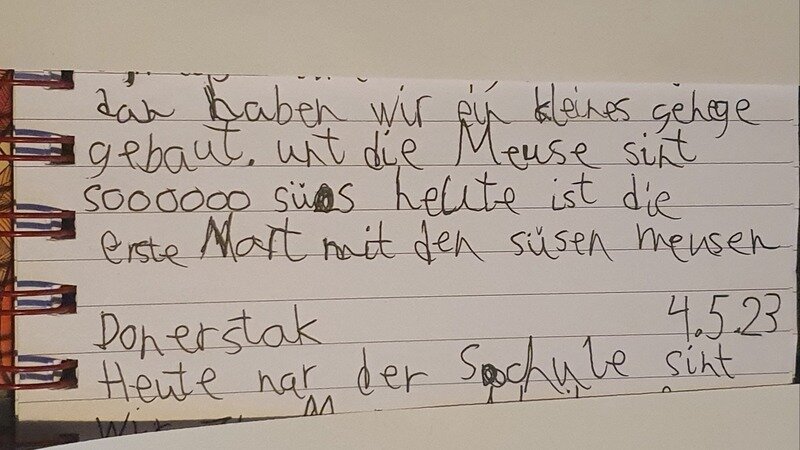 dan haben wir ein kleines gehege
gebaut. unt die Meuse sint
sooooooo süs heute ist die
erste Natt mit den süsen meusen
Donerstak 4.5.23
Heute nar der Schule sint